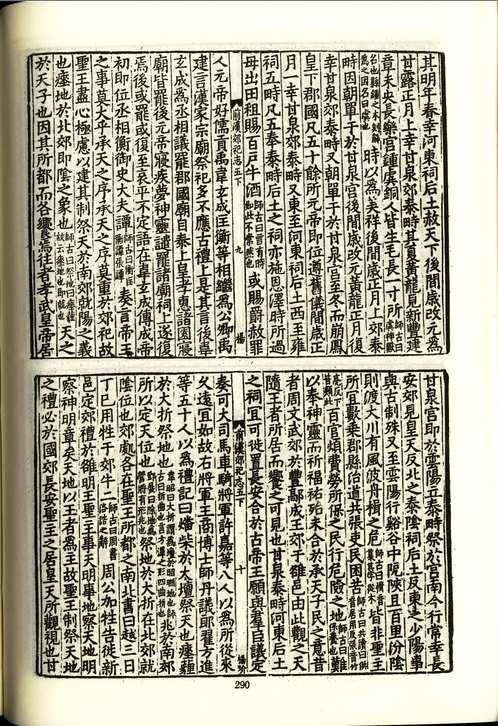 其明年春幸河東祠后土赦天下後間歲改元爲
甘露正月上幸甘泉郊泰畤其夏黃龍見新豐建
章未央長樂宮鍾虡銅人皆生毛長一寸所師古曰虡神獸
名也縣鍾之木刻飾爲之因名曰虡也時以爲美祥後間歲正月上郊泰
畤因朝單于於甘泉宮後間歲改元黃龍正月復
幸甘泉郊泰畤又朝單于於甘泉宮至冬而崩鳳
皇下郡國凡五十餘所元帝即位遵舊儀間歲正
月一幸甘泉郊泰畤又東至河東祠后土西至雍
祠五畤凡五奉泰畤后土之祠亦施恩澤時所過
毋出田租賜百戶牛酒師古曰言有時如此不常然也或賜爵赦罪
前漢郊祀志五下 九
人元帝好儒貢禹韋玄成匡衡等相繼爲公卿禹
建言漢家宗廟祭祀多不應古禮上是其言後韋
玄成爲丞相議罷郡國廟自泰上皇孝惠諸園寢
廟皆罷後元帝寢疾夢神靈譴罷諸廟祠上遂復
焉後或罷或復至哀平不定語在韋玄成傳成帝
初即位丞相衡御史大夫譚師古曰衡匡衡譚張譚奏言帝王
之事莫大乎承天之序承天之序莫重於郊祀故
聖王盡心極慮以建其制祭天於南郊就陽之義
也瘞地於北郊即陰之象也師古曰祭地曰瘞薶故云瘞地也即就也天之
於天子也因其所都而各饗焉往者孝武皇帝居
甘泉宮即於雲陽立泰畤祭於宮南今行常幸長
安郊見皇天反北之泰陰祠后土反東之少陽事
與古制殊又至雲陽行谿谷中阸陝且百里汾陰
則渡大川有風波舟楫之危皆非聖主
所宜數乘郡縣治道共張吏民困苦
百官煩費勞所保之民行危險之地師古曰保養也難
以奉神靈而祈福祐殆未合於承天子民之意昔
者周文武郊於豐鄗成王郊于雒邑由此觀之天
隨王者所居而饗之可見也甘泉泰畤河東后土
之祠宜可徙置長安合於古帝王願與羣臣議定
前漢郊祀志五下 十
奏可大司馬車騎將軍許嘉等八人以爲所從來
久遠宜如故右將軍王商博士師丹議郎翟方進
等五十人以爲禮記曰燔柴於大壇祭天也瘞薶
於大折祭地也兆於南郊
所以定天位也祭地於大折在北郊就
陰位也郊處各在聖王所都之南北書曰越三日
丁巳用牲于郊牛二師古曰周書洛誥之辭周公加牲告徙新
邑定郊禮於雒明王聖主事天明事地察天地明
察神明章矣天地以王者爲主故聖王制祭天地
之禮必於國郊長安聖主之居皇天所觀視也甘
290